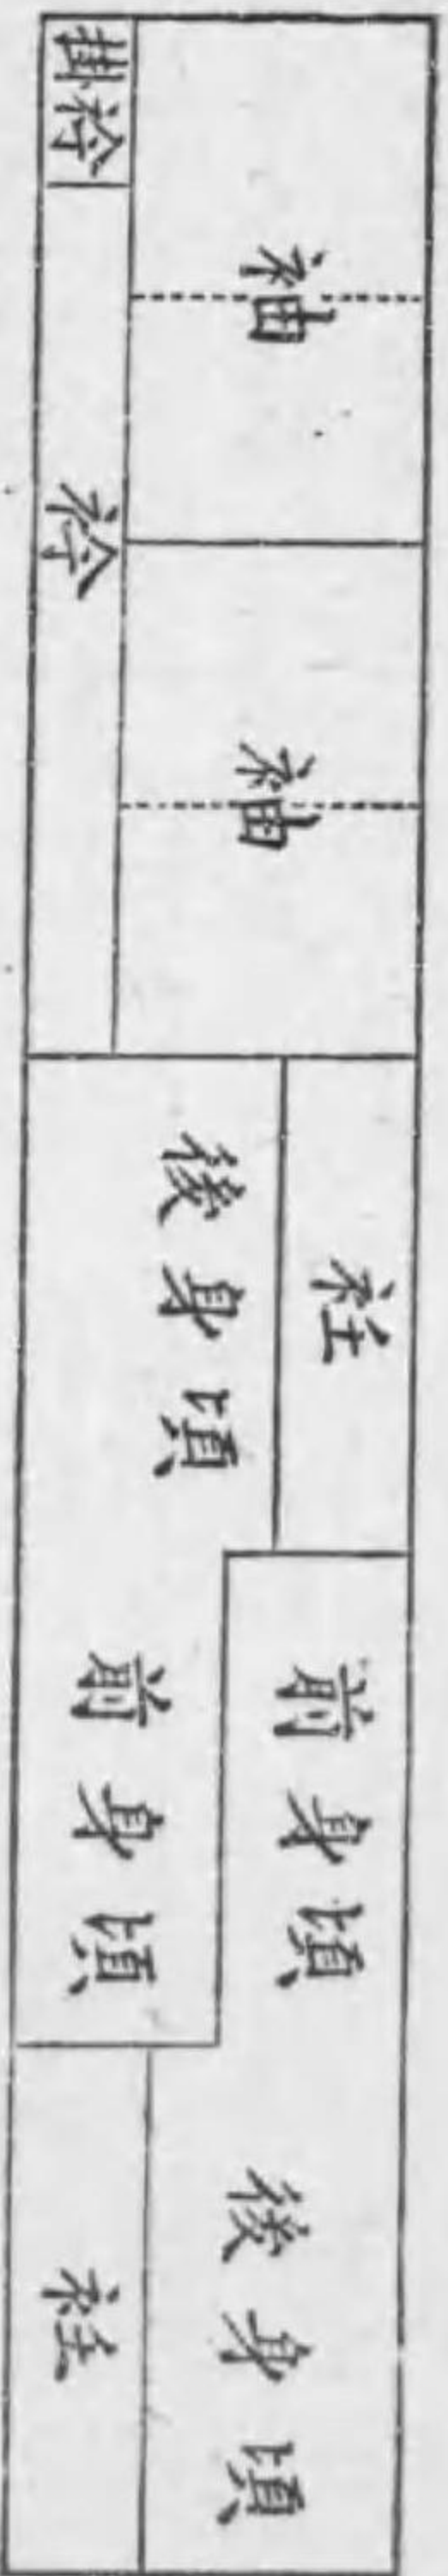 掛衿
袖
衿
袖
後身頃
衽
前身頃
前身頃
後身頃
衽